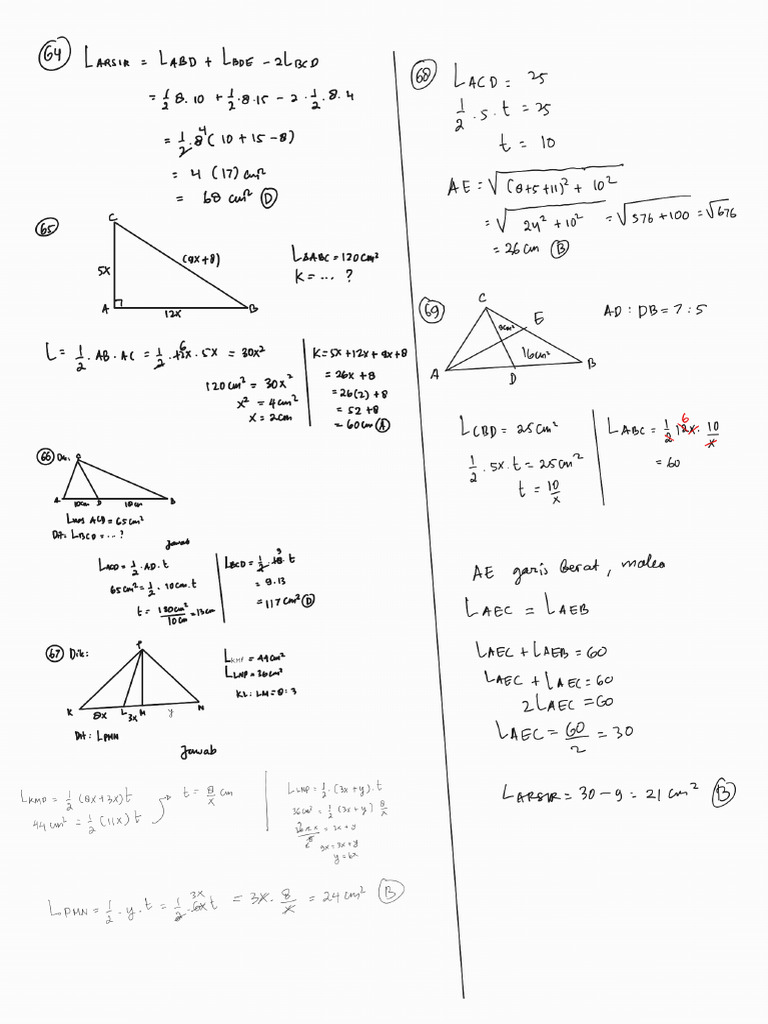 64 L ARSIR = L ABD + L BDE - 2 L BCD
= 1/2 8.10 + 1/2 . 8.15 - 2 . 1/2 . 8.4
= 1/2 . 8 4 (10 + 15 - 8)
= 4 (17) cm²
= 68 cm² D
65
C
5x
(9x+8)
A
12x
B
L ΔABC = 120 cm²
K = ... ?
L = 1/2 . AB . AC = 1/2 . 12x 6 . 5x = 30x²
120 cm² = 30x²
x² = 4 cm²
x = 2 cm
K = 5x + 12x + 9x + 8
= 26x + 8
= 26(2) + 8
= 52 + 8
= 60 cm A
66 Dik:
C
A
10cm
D
18cm
B
L ACD = 65 cm²
Dit: L BCD = ... ?
Jawab
L ACD = 1/2 . AD . t
65 cm² = 1/2 . 10 cm . t
t = 130 cm² / 10 cm = 13 cm
L BCD = 1/2 . 18 9 . t
= 9.13
= 117 cm² D
67 Dik:
P
K
8x
L
3x
M
y
N
L KMP = 44 cm²
L LNP = 36 cm²
KL : LM = 8 : 3
Dit: L PMN
Jawab
L KMP = 1/2 (8x + 3x) t
44 cm² = 1/2 (11x) t
t = 8/x cm
L LNP = 1/2 . (3x + y) . t
36 cm² = 1/2 (3x + y) 8/x
= 3x + y
9x = 3x + y
y = 6x
L PMN = 1/2 . y . t = 1/2 . 6x 3x t = 3x . 8/x = 24 cm² B
68 L ACD = 25
1/2 . 5 . t = 25
t = 10
AE = √((8+5+11)² + 10²)
= √(24² + 10²) = √(576 + 100) = √676
= 26 cm B
69
C
9cm²
E
16cm²
A
D
B
AD : DB = 7 : 5
L CBD = 25 cm²
1/2 . 5x . t = 25 cm²
t = 10/x
L ABC = 1/2 12x 6 . 10/x
= 60
AE garis berat, maka
L AEC = L AEB
L AEC + L AEB = 60
L AEC + L AEC = 60
2 L AEC = 60
L AEC = 60/2 = 30
L ARSIR = 30 - 9 = 21 cm² B